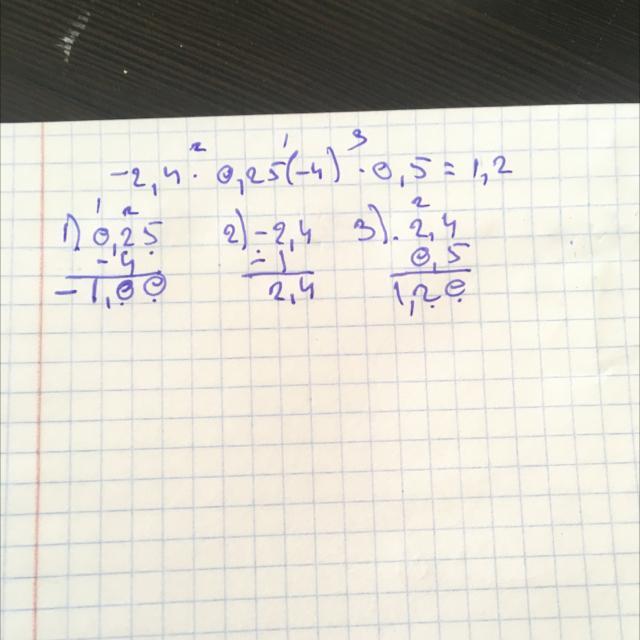 2 1 3
-2,4 · 0,25(-4) · 0,5 = 1,2
1 2 2
1) 0,25 2) -2,4 3) · 2,4
-4 -1 0,5
-1,00 2,4 1,20